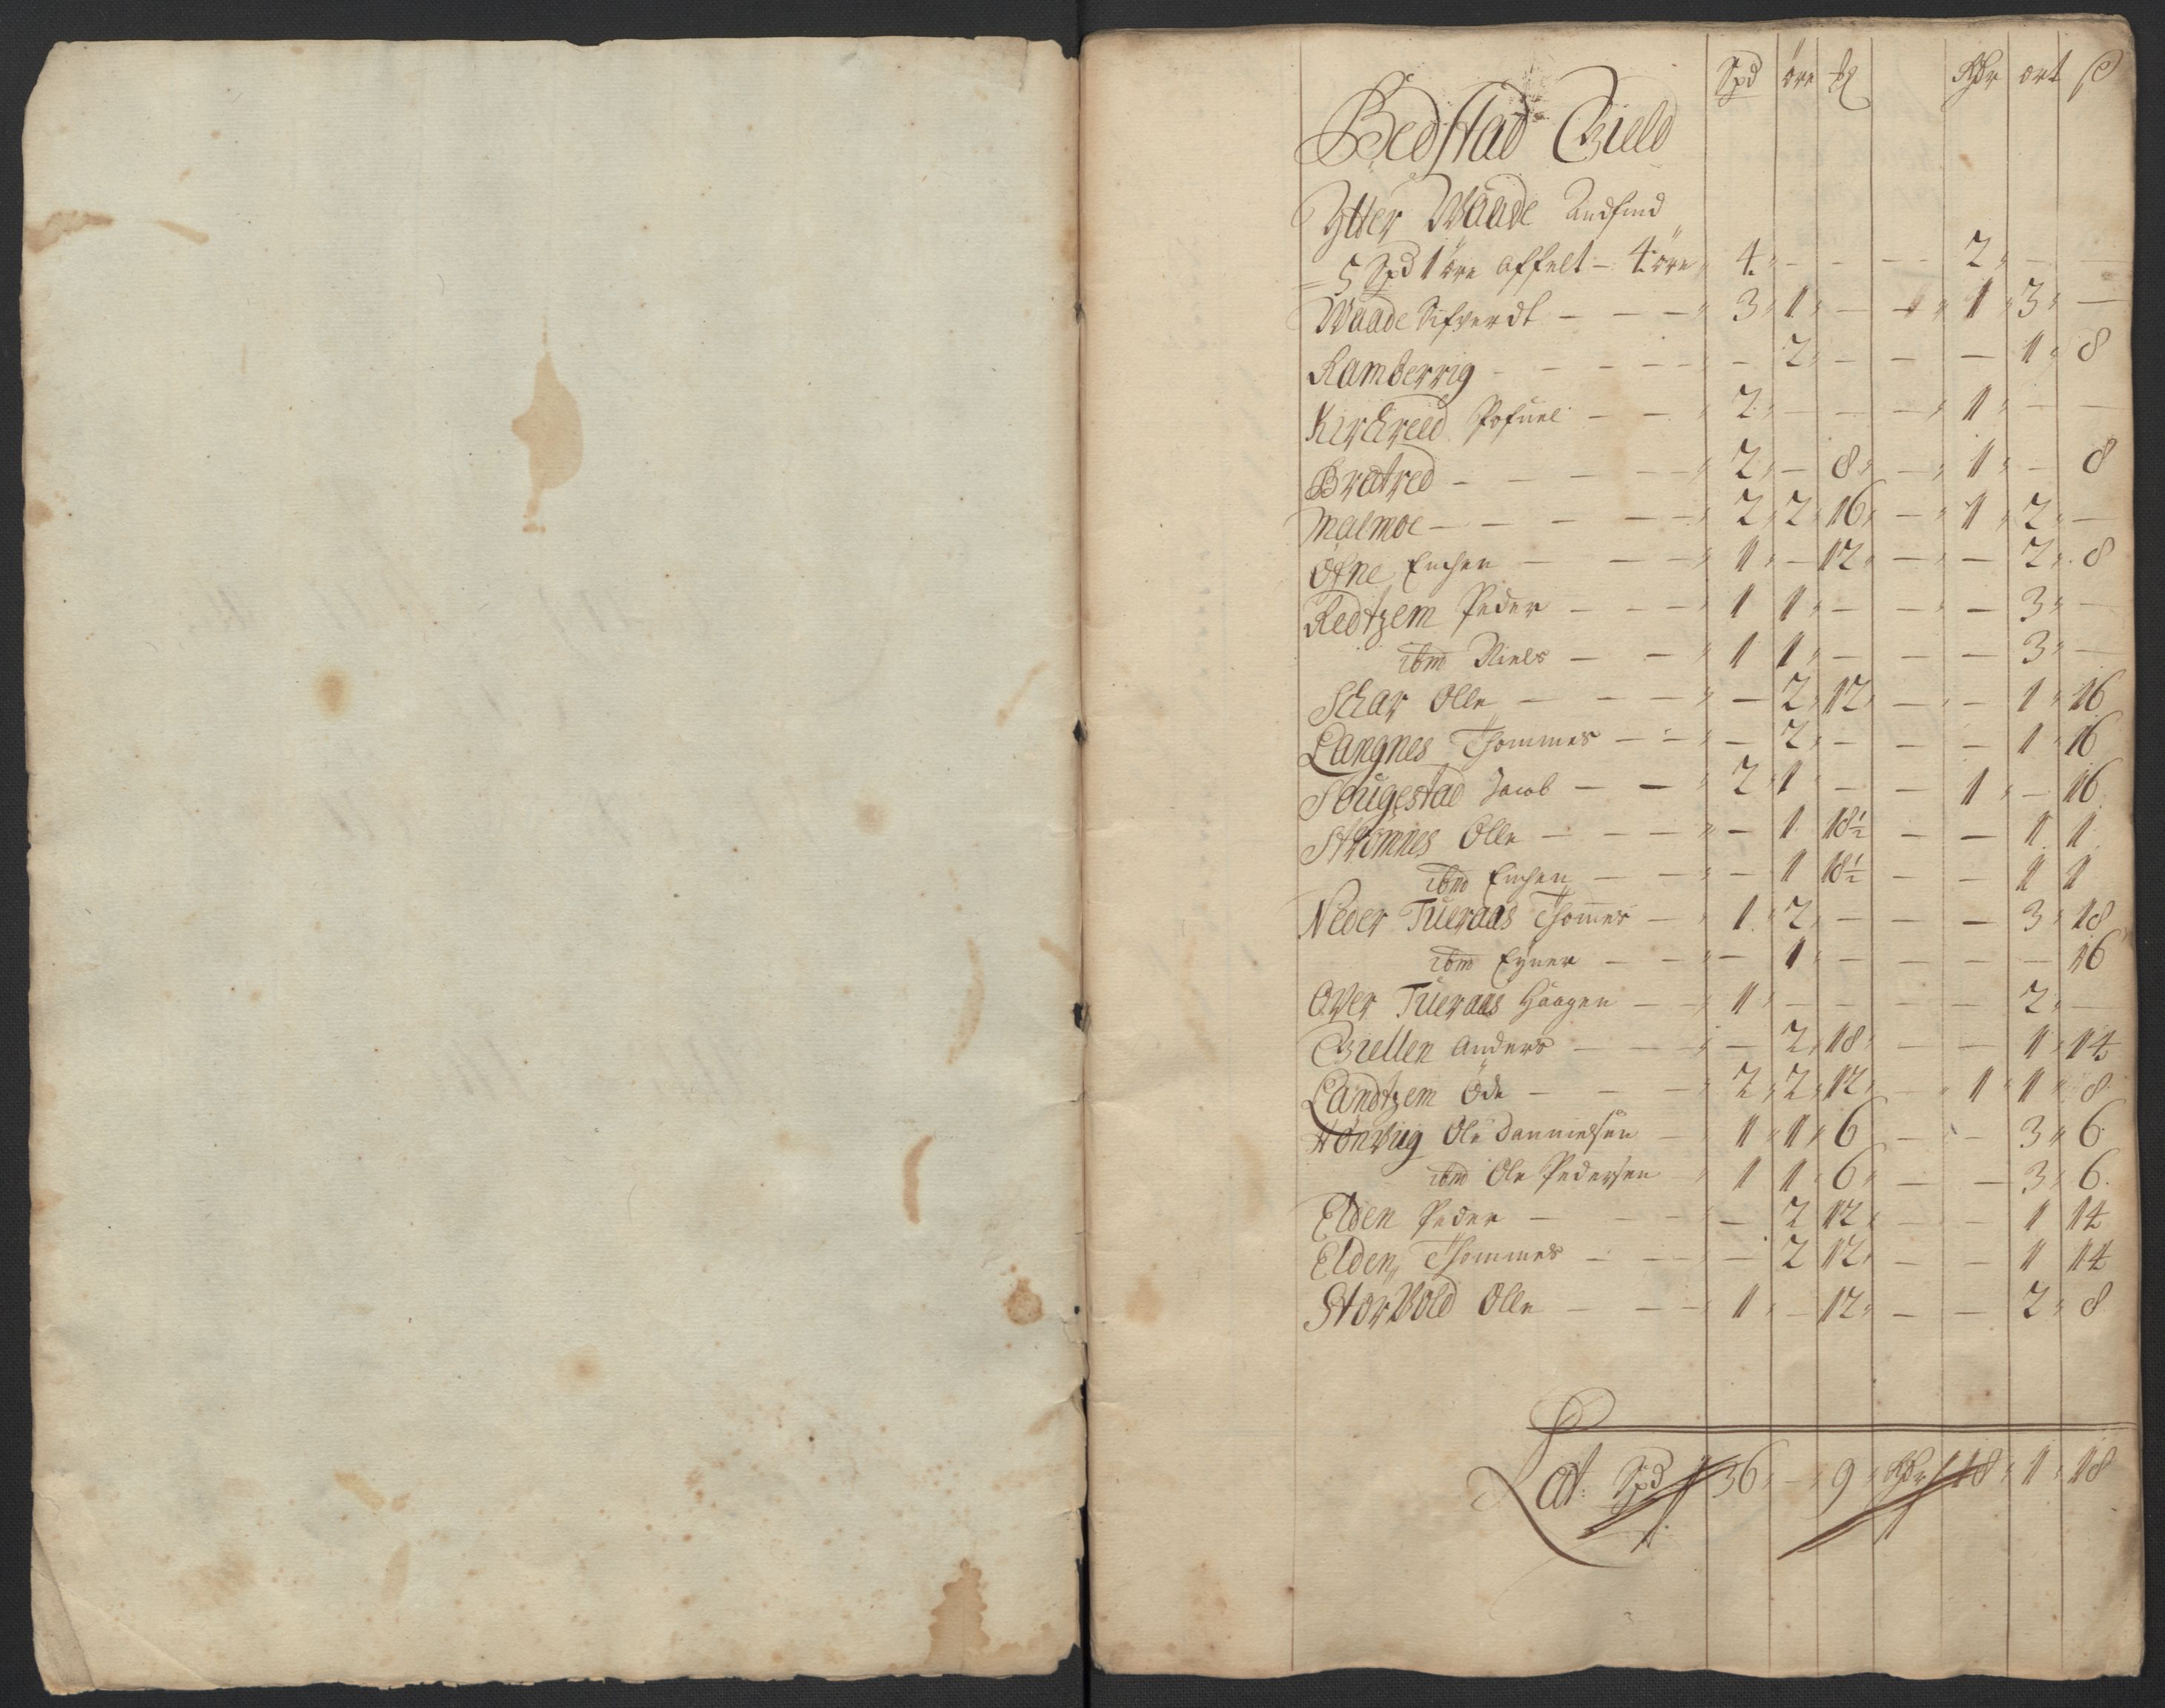 Spd öre mg Rdr ort ß
Bedstad Gield
Ytter Waade Andfind
5 Spd 1 öre affelt - 4 öre 4 - - - 2 - -
Waade Sifverdt - - - 3 1 - - 1 3 -
Ramberrig - - - - - 2 - - - 1 8
Kirchreed Pofuel - - 2 - - - 1 - -
Bratred - - - - 2 - 8 - 1 - 8
Malmoe - - - - 2 2 16 - 1 2 -
Öfne Erichen - - - 1 - 12 - - 2 8
Redtzem Peder - - - 1 1 - - - 3 -
ibm Niels - - 1 1 - - - 3 -
Schar Olle - - - - 2 12 - - 1 16
Langnes Thommes - - - 2 - - - 1 16
Sougestad Jacob - - 2 1 - - 1 - 16
Strömnes Olle - - - - 1 18½ - - 1 1
ibm Erichen - - - 1 18½ - - 1 1
Neder Tueraas Thommes - 1 2 - - - 3 18
ibm Eyner - - - 1 - - - - 16
Over Tueraas Haagen - - 1 - - - - 2 -
Giellen Anders - - - - 2 18 - - 1 14
Landtzem Öde - - - 2 2 12 - 1 1 8
Hönvug Ole Dannielsen - 1 1 6 - - 3 6
ibm Ole Pedersen - 1 1 6 - - 3 6
Elden Peder - - - - 2 12 - - 1 14
Elden Thommes - - - - 2 12 - - 1 14
StorVold Olle - - - 1 - 12 - - 2 8
Lat: Spd 36 - 9 Rdr 18 1 18